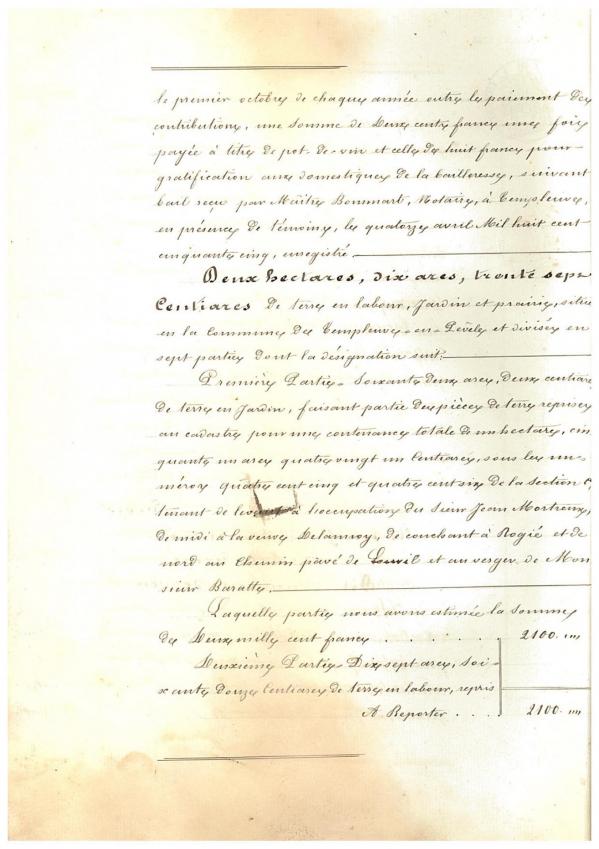 le premier octobre de chaque année outre le paiement des
contributions, une somme de Deux cents francs une fois
payée à titre de pot-de-vin et celle de huit francs pour
gratification aux domestiques de la bailleresse, suivant
bail reçu par Maître Bonmart, Notaire, à Templeuve,
en présence de témoins, le quatorze avril Mil huit cent
cinquante cinq, enregistré.
Deux hectares, dix ares, trente sept
Centiares de terre en labour, Jardin et prairie, située
en la Commune de Templeuve-en-Pévèle et divisée en
sept parties dont la désignation suit:
Première Partie - Soixante deux ares, Deux centiares
de terre en Jardin, faisant partie des pièces de terre reprises
au cadastre pour une contenance totale de un hectare, cin
quante un ares quatre vingt un Centiares, sous les nu-
méros quatre cent cinq et quatre cent six de la section C.
tenant de levant à l'occupation du sieur Jean Mortreux,
de midi à la veuve Delannoy, de couchant à Rogié et de
nord au Chemin pavé de Louvil et au verger de Mon
sieur Baratte.
Laquelle partie nous avons estimée la somme
de Deux mille cent francs . . . . . . 2100. "
Deuxième Partie - Dix sept ares, Soi-
xante Douze Centiares de terre en labour, repris
A Reporter . . . 2100. "